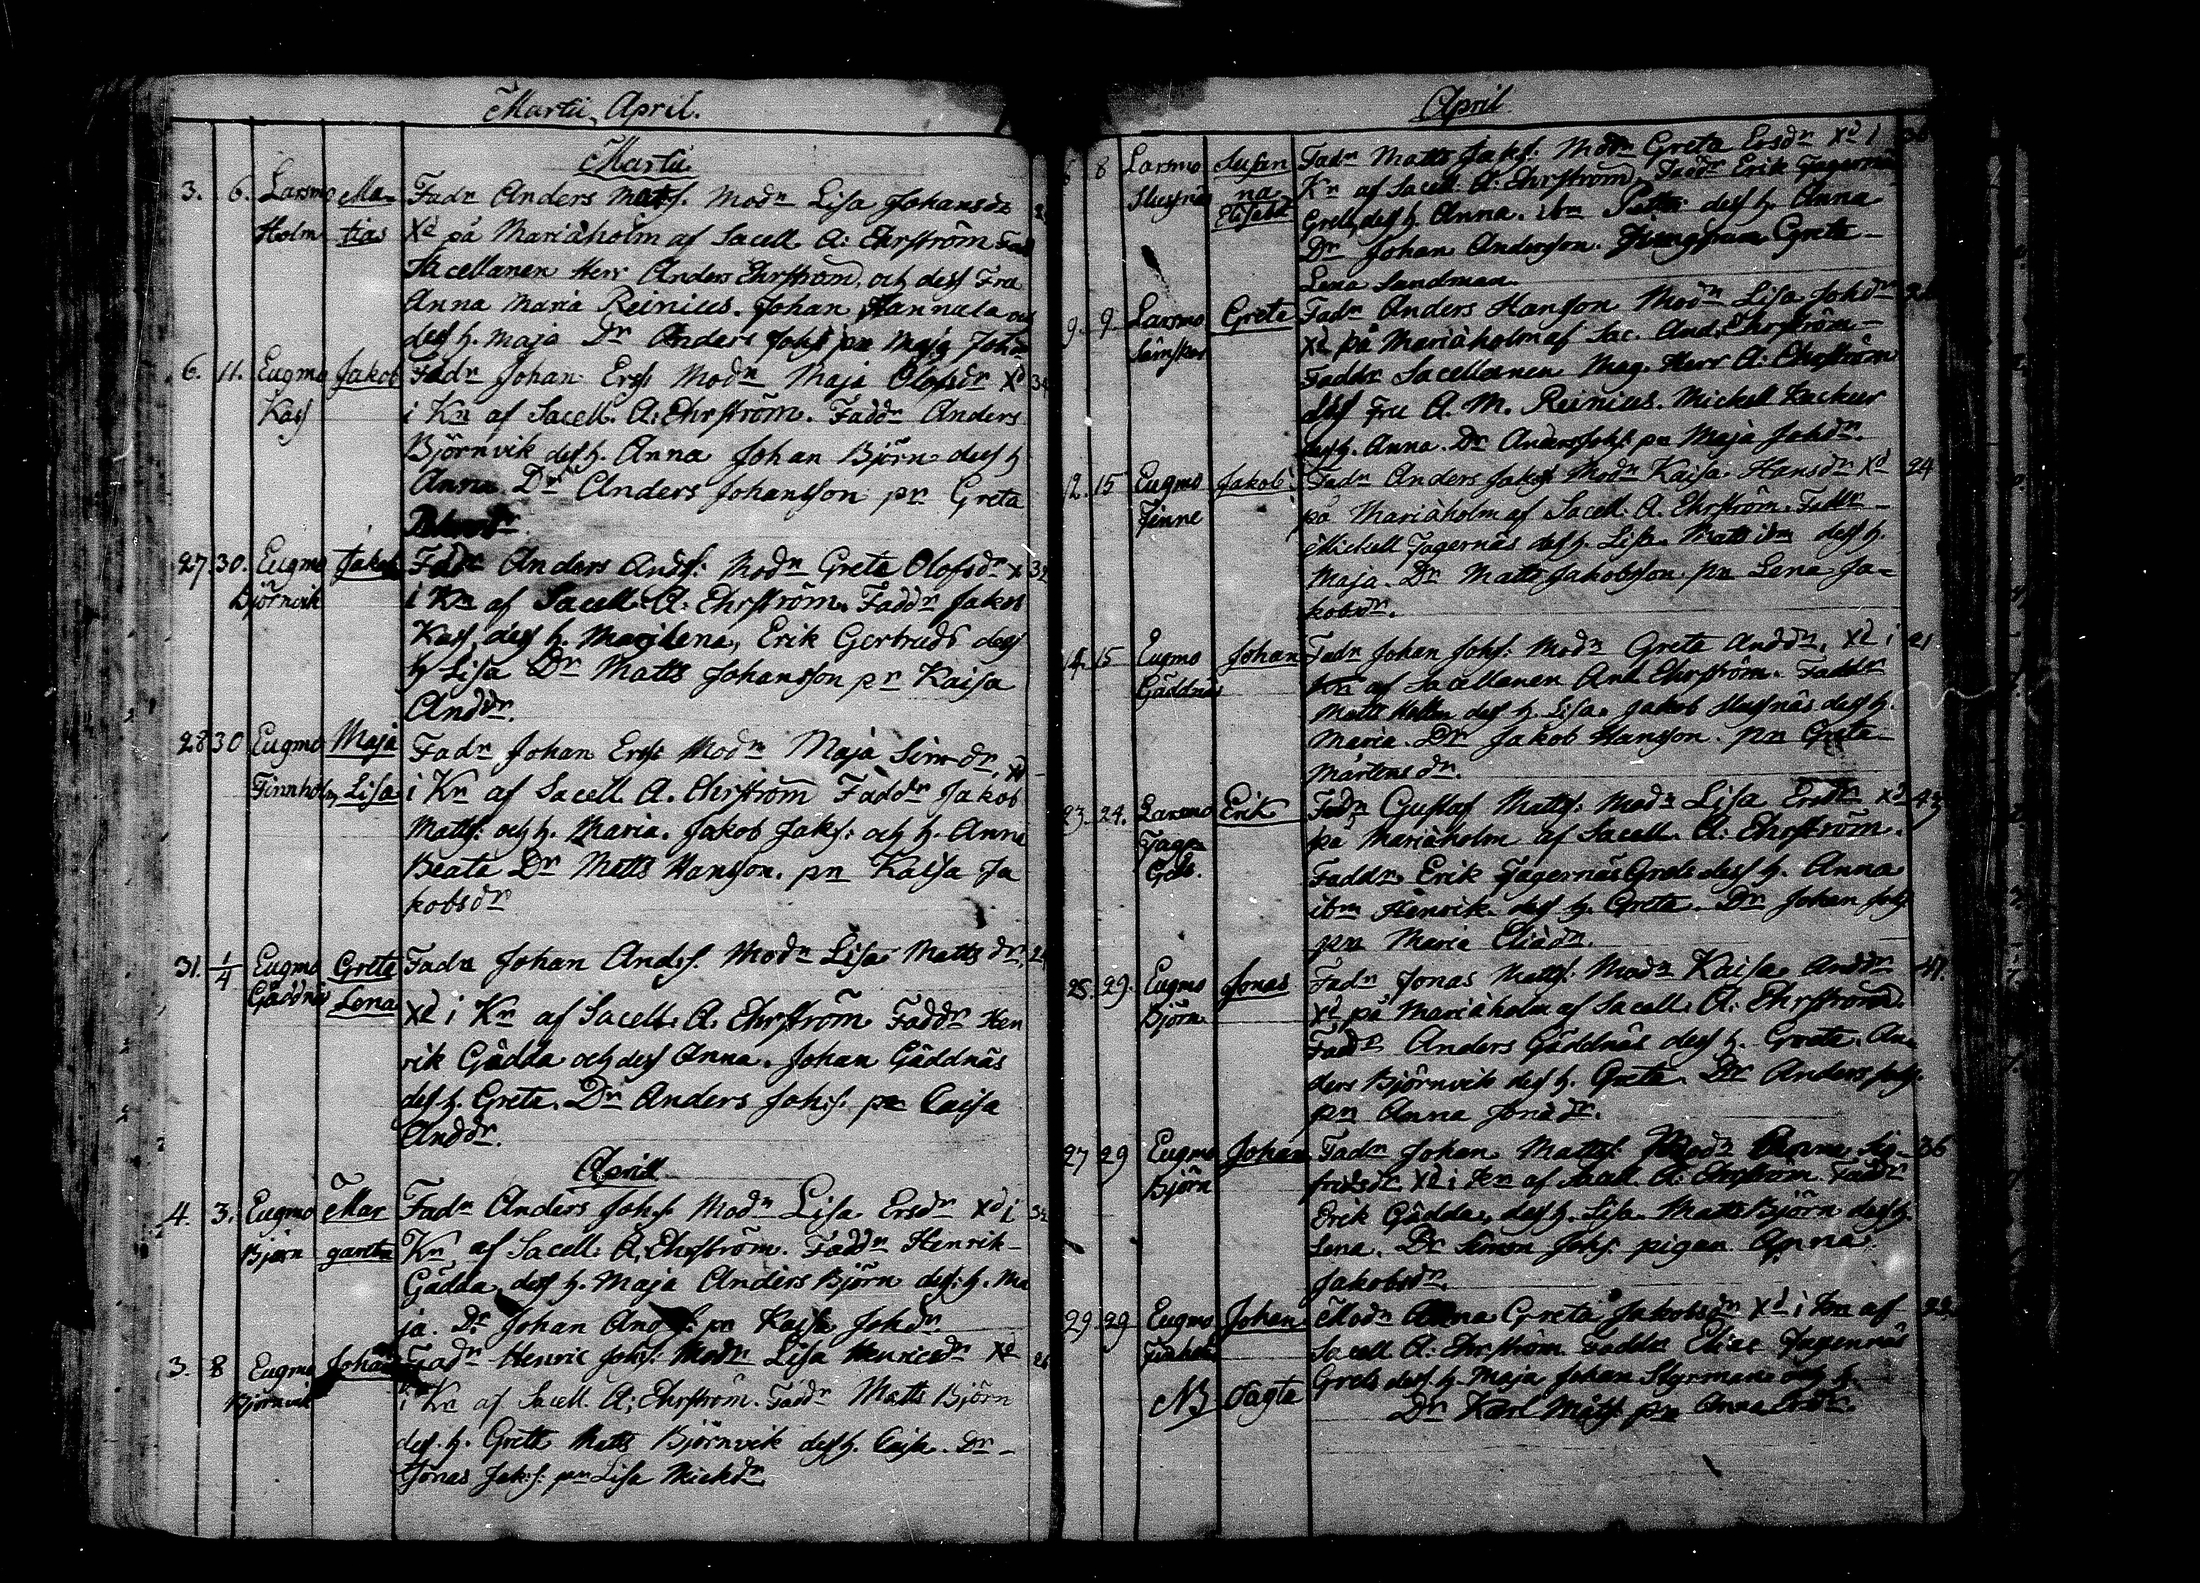 Martii, April.
Martii
3. 6. Larsmo Ma- Fadn Anders Matts. Modn Lisa Johansdr
Holm tias Xd på Mariæholm af Sacell. A: Ehrström Fadd
Sacellanen Herr Anders Ehrström, och dess Fru
Anna Maria Reinius. Johan Hannula och
dess h. Maja Dr Anders Johs pn Maja Johdr
6. 11. Eugmo Jakob Fadn Johan Ersss Modn Maja Olofsdr Xd 34
Kass i Kn af Sacell. A: Ehrström. Faddr Anders
Björnvik dess h. Anna Johan Björn dess h
Anna. Dr Anders Johansson pn Greta
27 30. Eugmo Jakob Fadn Anders Ands: Modn Greta Olofsdr X
Björnvik i Kn af Sacell. A: Ehrström. Faddr Jakob
Kass dess h. Majlena, Erik Gertruds dess
h Lisa Dr Matts Johansson pn Kaisa
Anddr.
28 30 Eugmo Maja Fadn Johan Erss: Modn Maja Simdr, Xd
Finnholm Lisa i Kn af Sacell A. Ehrström Faddr Jakob
Matts: och h. Maria. Jakob Jaks: och h. Anna
Beata Dr Matts Hansson. pn Kaisa Ja
kobsdr
31. 1/4 Eugmo Greta Fadn Johan Ands. Modn Lisa Mattsdr.
Gäddnäs Lena Xd i Kn af Sacell. A. Ehrström Faddr Hen
rik Gädda och dess Anna. Johan Gäddnäs
dess h. Greta. Dr Anders Johs. pn Caisa
Anddr.
Aprill
4. 3. Eugmo Mar Fadn Anders Johs. Modn Lisa Ersdr Xd i
Björn gareta Kn af Sacell: A. Ehrström. Faddr Henrik-
Gädda, dess h. Maja Anders Björn dess: h. Ma
ja. Dr Johan Ands: pn Kaisa Johdr
3. 8 Eugmo Johan Fadn Henric Johs: Modn Lisa Henricsdr Xd 26
Björnvik i Kn af Sacell. A: Ehrström. Faddr Matts Björn
des. h. Greta Matts Björnvik dess h. Caisa. Dr -
Jonas Jaks: pn Lisa Mickdr
April
8 Larsmo Susan Fadn Matts Jaks: Modn Greta Ersdr Xd i
na Kn af Sacell. A: Ehrström. Faddr Erik Fagernäs
Elisabet Grels, dess h. Anna. ibm dess h. Anna
Dr Johan Andersson. Jungfrun Greta-
Lena Sandman
9. 9 Larsmo Greta Fadn Anders Hansson Modn Lisa Johdr
Xd på Mariæholm af Sac. And. Ehrström-
Faddr Sacellanen Mag. Herr A: Ehrström
dess Fru A. M. Reinius. Mickell
dess h. Anna. Dr Anders Johs: pn Maja Johdr.
12. 15 Eugmo Jakob Fadn Anders Jaks: Modn Kaisa Hansdr Xd 24
Finne på Mariæholm af Sacell. A. Ehrström. Faddr -
Mickell Fagernäs dess h. Lisa. Matts ibm dess h.
Maja. Dr Matts Jakobsson pn Lena Ja=
kobsdr.
14. 15 Eugmo Johan Fadn Johan Johs: Modn Greta Anddr, Xd i 21
Gäddnäs Kn af Sacellanen And. Ehrström. Faddr
Matts Holm dess h. Lisa. Jakob dess h.
Maria. Dr Jakob Hansson. pn Greta-
Mårtensdr.
23. 24. Larsmo Erik Fadn Gustaf Matts: Modn Lisa Ersdr Xd
på Mariæholm af Sacell. A: Ehrström.
Grels. Faddr Erik Fagernäs Grels dess h. Anna
ibm Henrik dess h. Greta. Dr Johan Johs
pn Maria Eliædr.
28. 29. Eugmo Jonas Fadn Jonas Matts: Modn Kaisa Anddr 41.
Björn Xd på Mariæholm af Sacell. A: Ehrström.
Faddr Anders Gäddnäs dess h. Greta. An-
ders Björnvik dess h. Greta. Dr Anders Johs.
pn Anna Jonædr.
27 29 Eugmo Johan Fadn Johan Matts: Modn Anna Sig- 36
Björn fridsdr Xd i Kn af Sacell A: Ehrström Faddr
Erik Gädda, dess h. Lisa. Matts Björn dess h.
Lena. Dr Simon Johs: pigan Anna
Jakobsdr.
29 29 Eugmo Johan Modn Anna Greta Jakobsdr Xd i Kn af
Sacell A: Ehrström Faddr Elias Fagernäs
Grels dess h. Maja Johan Styrman och h.
NB oägta Dr Karl Matss. pn Anna Ersdr.